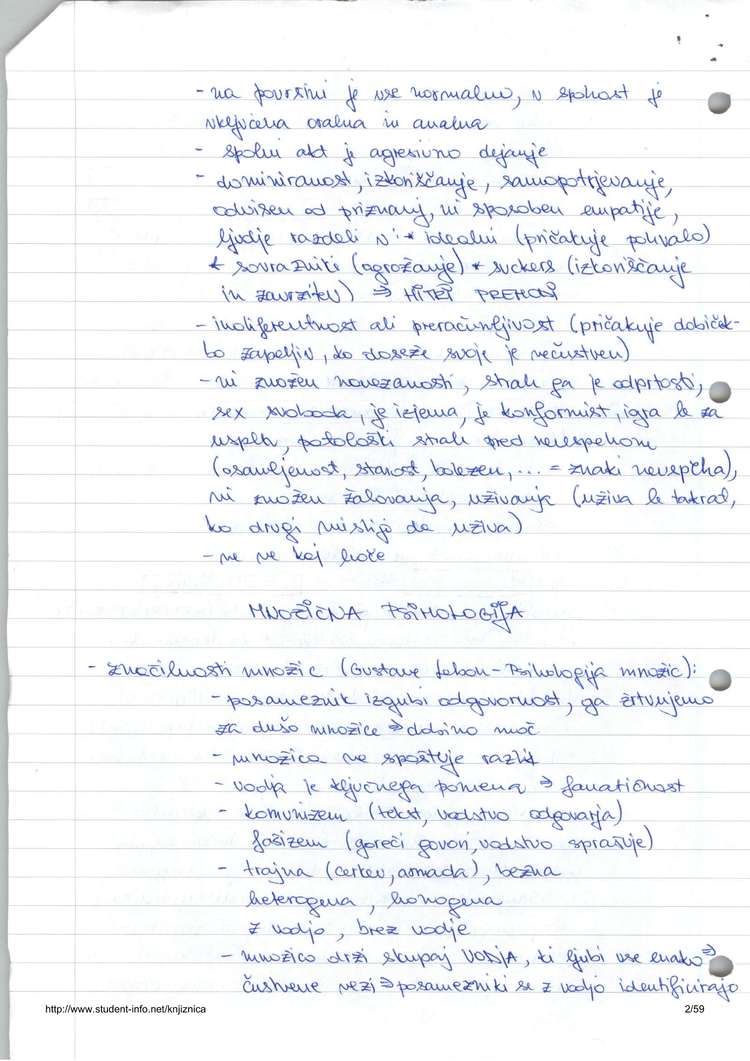 - na površini je vse normalno, v spolnost je
vključena oralna in analna
- spolni akt je agresivno dejanje
- dominiranost, izkoriščanje, samopotrjevanje,
odvisen od priznanj, ni sposoben empatije,
ljudje razdeli v: * idealni (pričakuje pohvalo)
* sovražniki (ogrožanje) * suckers (izkoriščanje
in zavrzitev) ⇒ HITRI PREHODI
- indiferentnost ali preračunljivost (pričakuje dobiček-
bo zapeljiv, ko doseže svoje je nečustven)
- ni zmožen navezanosti, strah ga je odprtosti,
sex svoboda, je izjema, je konformist, igra le za
uspeh, patološki strah pred neuspehom
(osamljenost, starost, bolezen, ... = znaki neuspeha),
ni zmožen žalovanja, uživanja (uživa le takrat,
ko drugi mislijo da uživa)
- ne ve kaj hoče
MNOŽIČNA PSIHOLOGIJA
- značilnosti množic (Gustave Lebon - Psihologija množic):
- posameznik izgubi odgovornost, ga žrtvujemo
za dušo množice ⇒ dobimo moč
- množica ne spoštuje razlik
- vodja je ključnega pomena ⇒ fanatičnost
- komunizem (tekst, vodstvo odgovarja)
fašizem (goreči govori, vodstvo sprašuje)
- trajna (cerkev, armada), bežna
heterogena, homogena
z vodjo, brez vodje
- množico drži skupaj VODJA, ki ljubi vse enako ⇒
čustvene vezi ⇒ posamezniki se z vodjo identificirajo
http://www.student-info.net/knjiznica 2/59